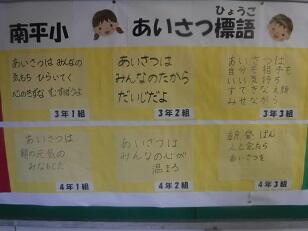 南平小
あいさつ標語
ひょうご
あいさつは みんなの
気もち ひらいてく
心のきずな むすぼうよ
3年1組
あいさつは
みんなのたから
だいじだよ
3年2組
あいさつは
自分も 相手も
いい気持ち
すてきなえ顔
みせながら
3年3組
あいさつは
朝の元気の
みなもとだ
4年1組
あいさつは
みんなの心が
温まる
4年2組
朝 昼 ばん
人と会たら
あいさつを
4年3組